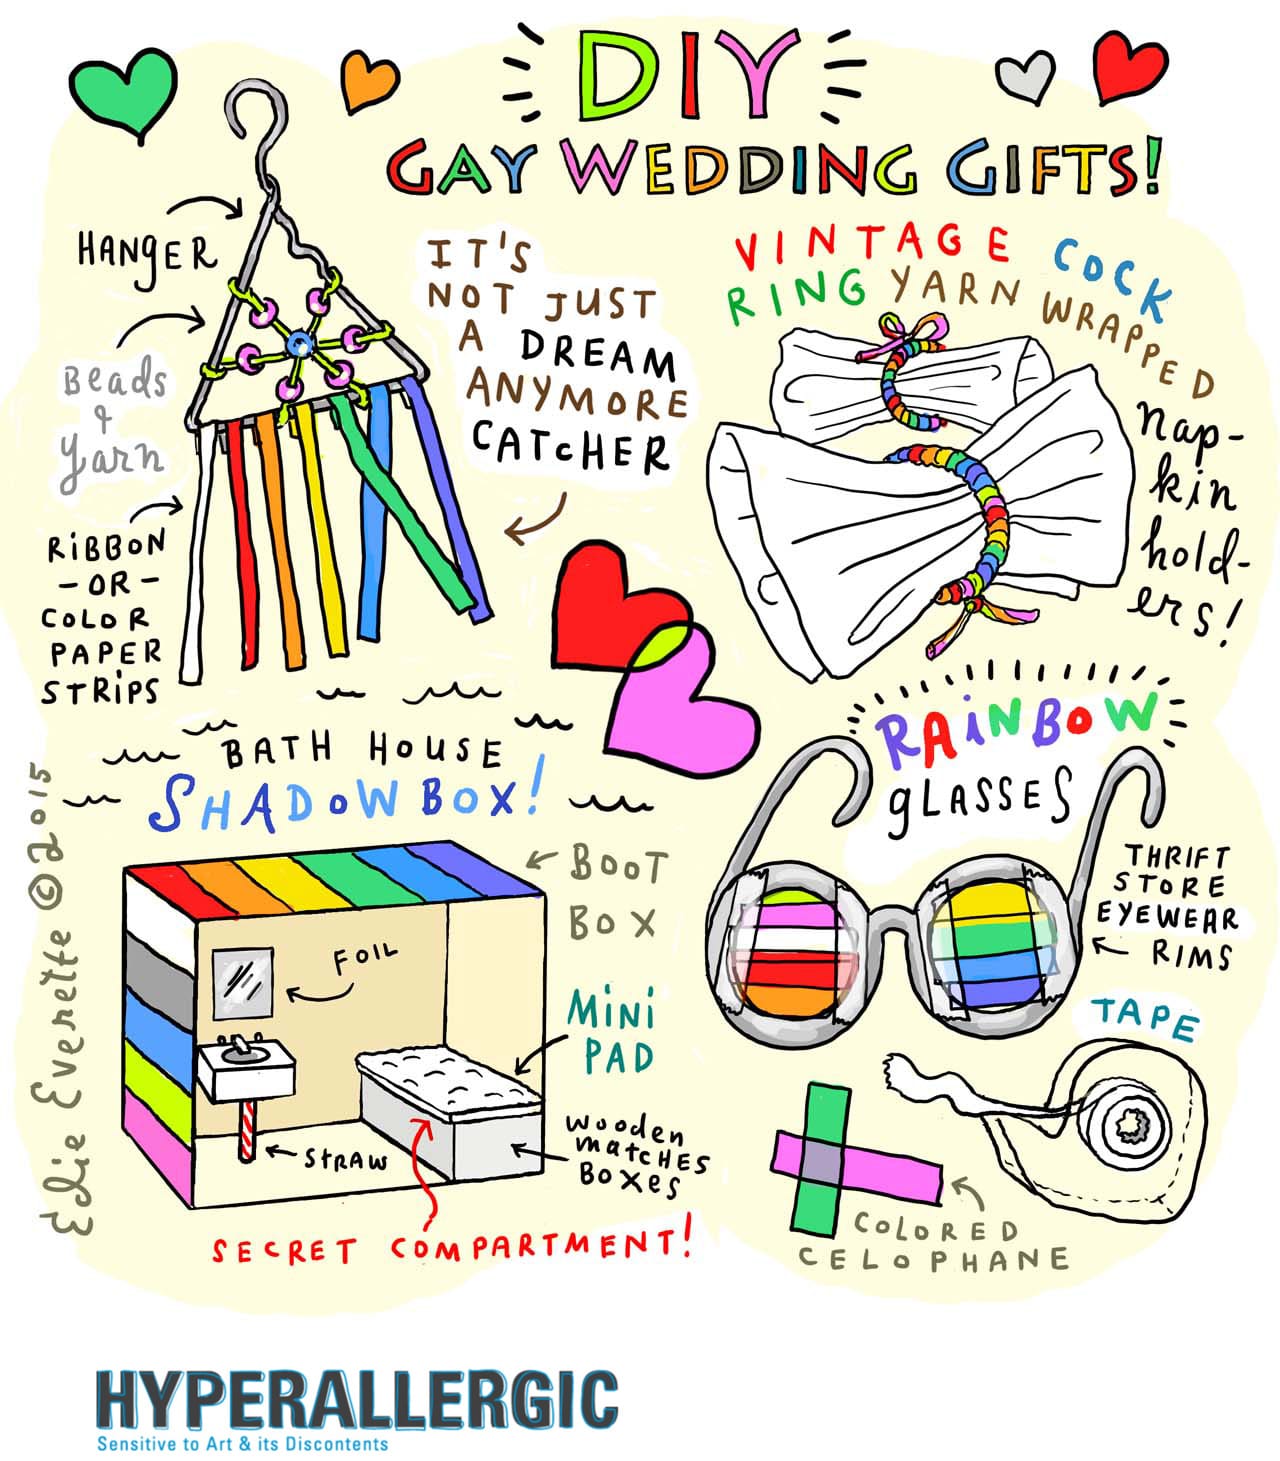 DIY
GAY WEDDING GIFTS!
HANGER
BEADS
&
YARN
RIBBON
-OR-
COLOR
PAPER
STRIPS
IT'S
NOT JUST
A DREAM
ANYMORE
CATCHER
VINTAGE COCK
RING YARN WRAPPED
Nap-
kin
hold-
ers!
BATH HOUSE
SHADOWBOX!
BOOT
BOX
FOIL
MINI
PAD
STRAW
WOODEN
MATCHES
BOXES
SECRET COMPARTMENT!
RAINBOW
GLASSES
THRIFT
STORE
EYEWEAR
RIMS
TAPE
COLORED
CELOPHANE
Edie Everette © 2015
HYPERALLERGIC
Sensitive to Art & its Discontents